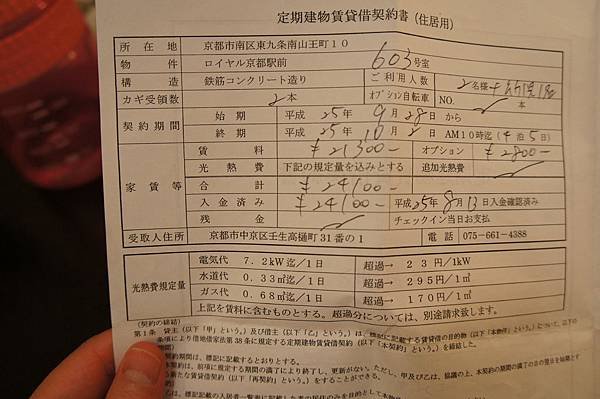 定期建物賃貸借契約書(住居用)
所在地 京都市南区東九条南山王町10
物件 ロイヤル京都駅前 603号室
構造 鉄筋コンクリート造り ご利用人数 2名様+
カギ受領数 2本 オプション自転車 NO. 本
契約期間 始期 平成 25年 9月 28日 から
終期 平成 25年 10月 2日 AM10時迄(4泊5日)
家賃等 賃料 ¥21300- オプション ¥2800-
光熱費 下記の規定量を込みとする 追加光熱費
合計 ¥24100-
入金済み ¥24100- 平成25年8月13日入金確認済み
残金 チェックイン当日お支払
受取人住所 京都市中京区壬生高樋町31番の1 電話 075-661-4388
光熱費規定量 電気代 7.2kW迄/1日 超過→ 23円/1kW
水道代 0.33㎥迄/1日 超過→ 295円/1㎥
ガス代 0.68㎥迄/1日 超過→ 170円/1㎥
上記を賃料に含むものとする。超過分については、別途請求致します。
(契約の締結)
第1条 貸主(以下「甲」という。)及び借主(以下「乙」という。)は、標記に記載する賃貸借の目的物(以下「本物件」という。)について、以下の
条項により借地借家法第38条に規定する定期建物賃貸借契約(以下「本契約」という。)を締結した。
契約期間は、標記に記載するとおりとする。
本契約は、前項に規定する期間の満了により終了し、更新がない。ただし、甲及び乙は、協議の上、本契約の期間の満了の日の翌日を始期とす
る新たな賃貸借契約(以下「再契約」という。)をすることができる。
乙は、標記記載の入居者一覧表に記載した者の居住のみを目的として本物